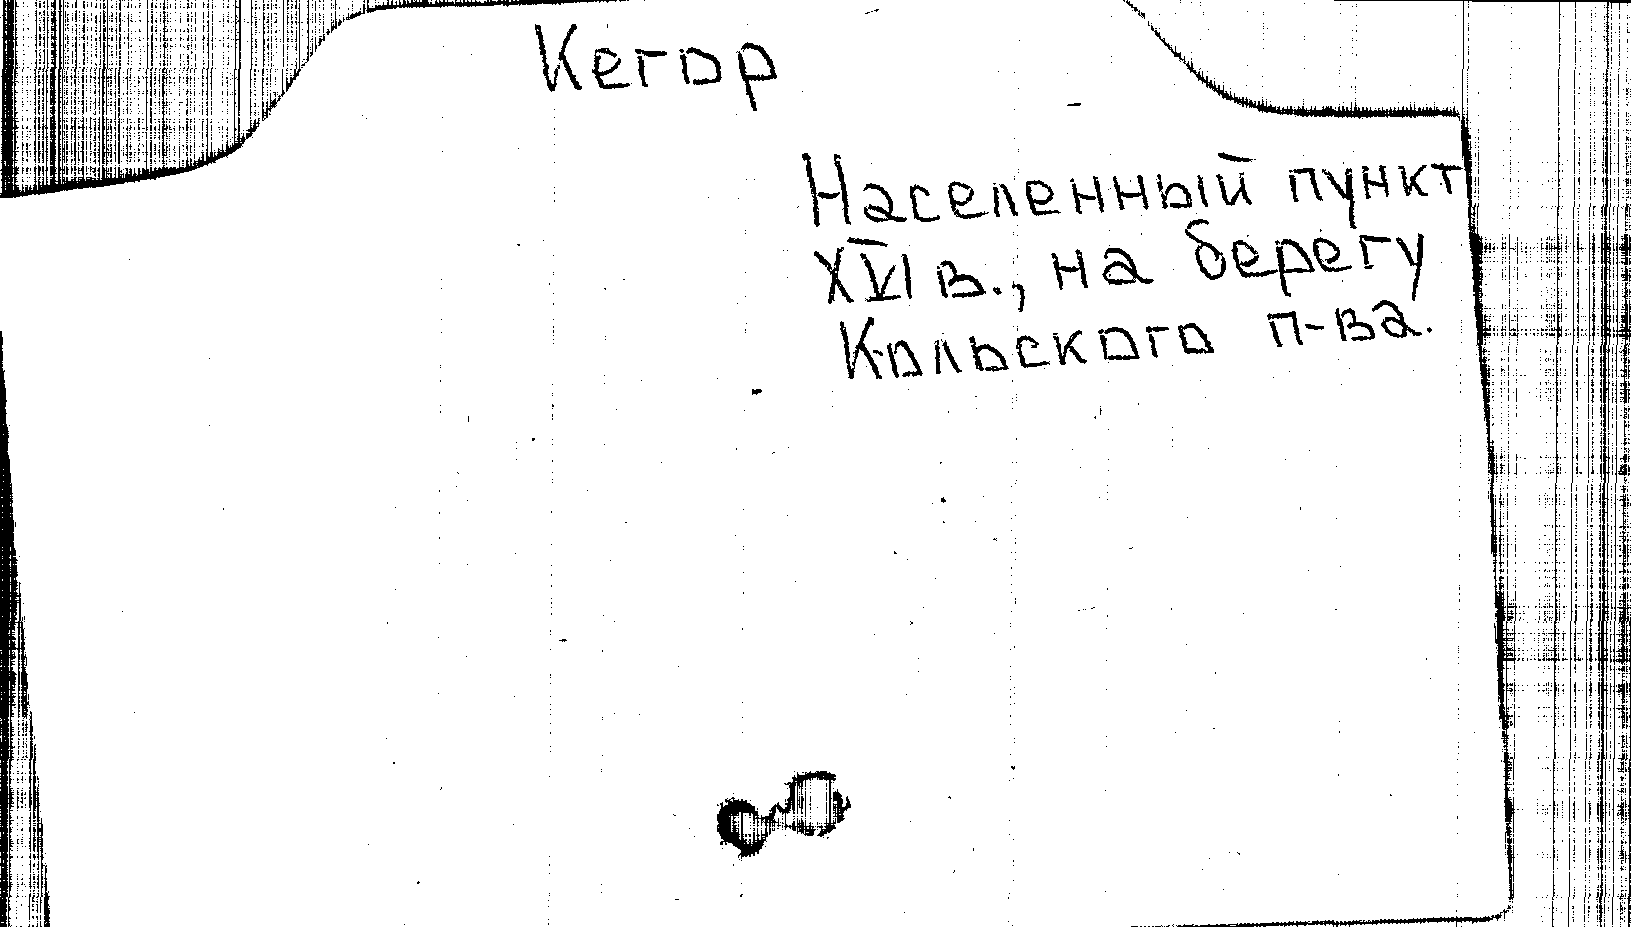 Кегор
Населенный пункт
XVI в., на берегу
Кольского п-ва.